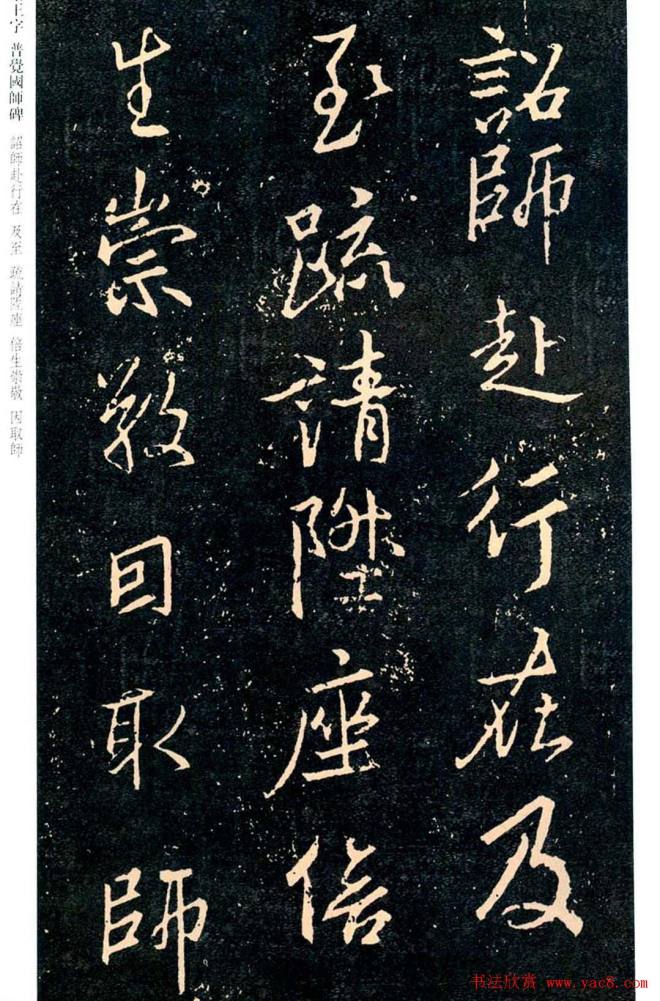 詔師赴行在及
至疏請陞座倍
生崇敬因取師
王字 普覺國師碑 詔師赴行在 及至 疏請陞座 倍生崇敬 因取師
书法欣赏 www.yac8.com